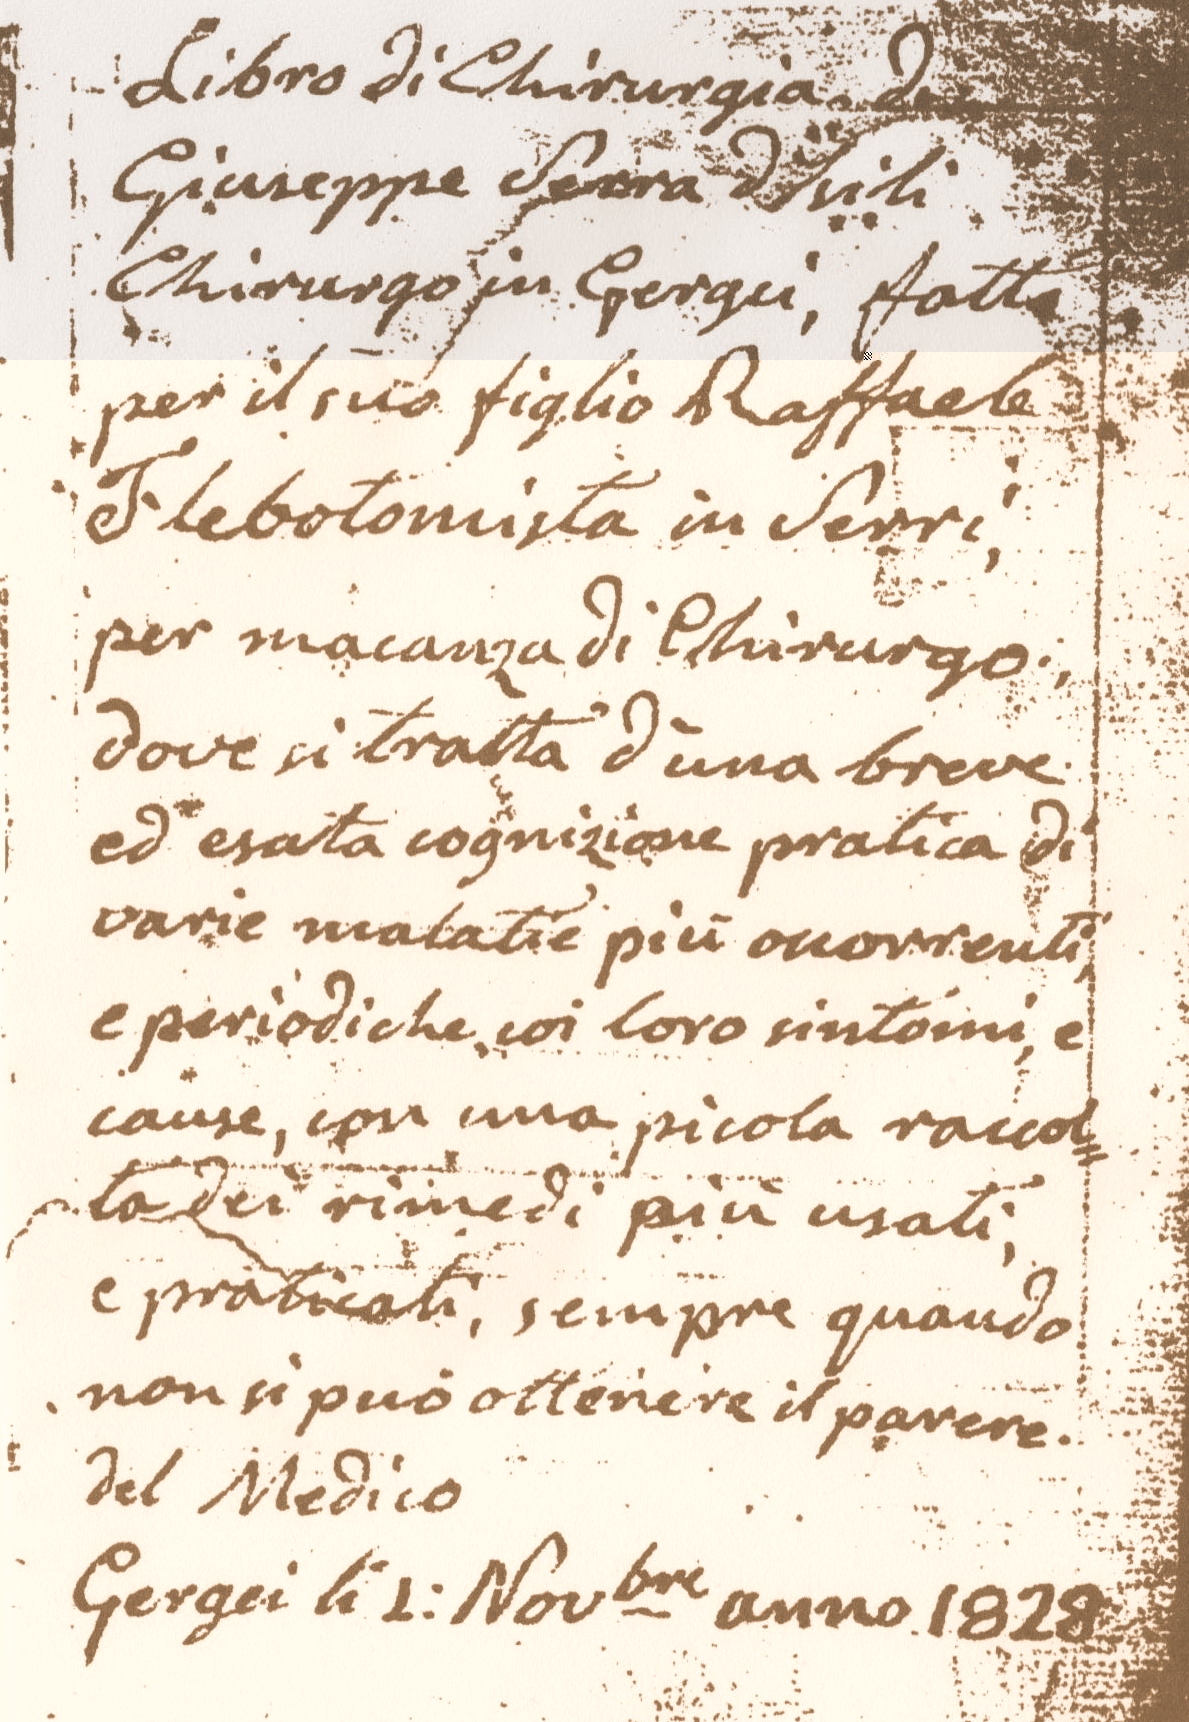 Libro di Chirurgia di
Giuseppe Serra Usili
Chirurgo in Gergei, fatto
per il suo figlio Raffaele
Flebotomista in Serri,
per macanza di Chirurgo;
dove si tratta d'una breve
ed esata cognizione pratica di
varie malatie più ocorrenti,
e periodiche, coi loro sintomi, e
cause, con una picola raccol=
ta dei rimedi più usati,
e praticati, sempre quando
non si può ottenere il parere
del Medico
Gergei li 1: Novbre anno 1828